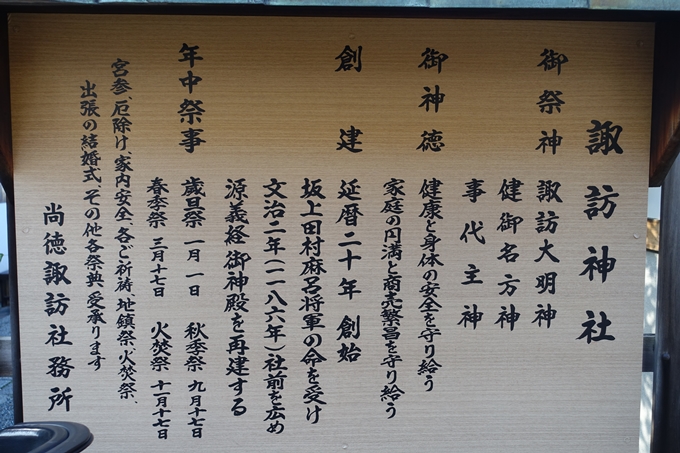 諏訪神社
御祭神 諏訪大明神
健御名方神
事代主神
御神徳 健康と身体の安全を守り給う
家庭の円満と商売繁昌を守り給う
創建 延暦二十年 創始
坂上田村麻呂将軍の命を受け
文治二年(一一八六年)社前を広め
源義経御神殿を再建する
年中祭事 歳旦祭 一月一日 秋季祭 九月十七日
春季祭 三月十七日 火焚祭 十一月十七日
宮参、厄除け、家内安全、各ご祈祷、地鎮祭、火焚祭、
出張の結婚式、その他各祭典、受承ります
尚徳諏訪社務所